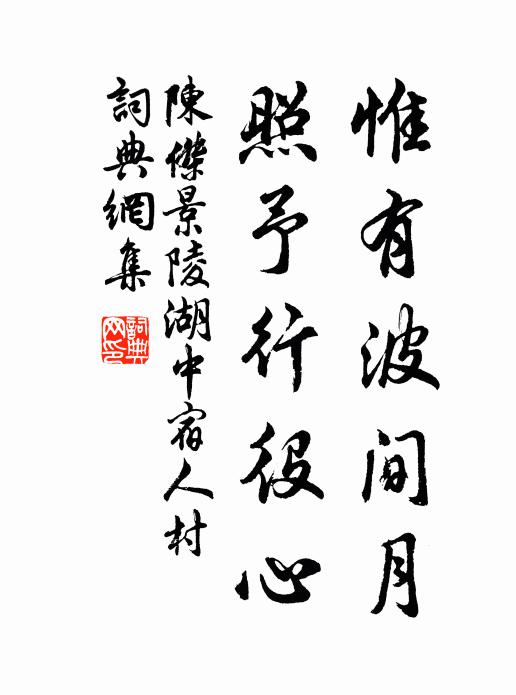 惟有波間月
照予行役心
陳傑景陵湖中宿人村
詞典網集
詞典网印